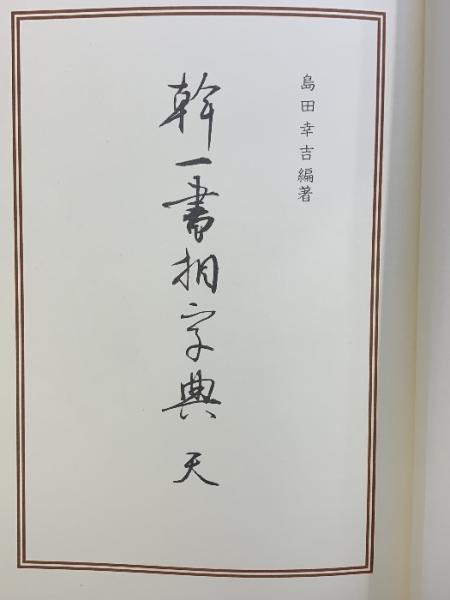 島田幸吉編著
幹一書相字典 天